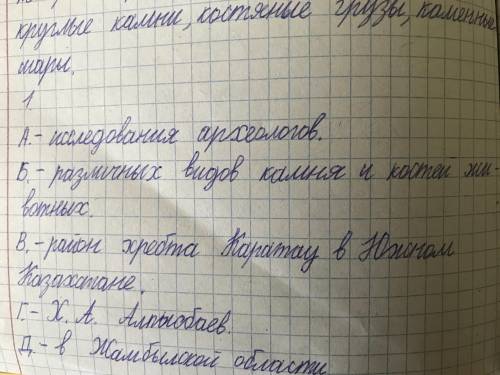 круглые камни, костяные грузы, каменные
шары.
1.
А. - исследования археологов.
Б. - различных видов камня и костей жи-
вотных.
В. - район хребта Каратау в Южном
Казахстане.
Г. - Х. А. Алпысбаев.
Д. - в Жамбылской области